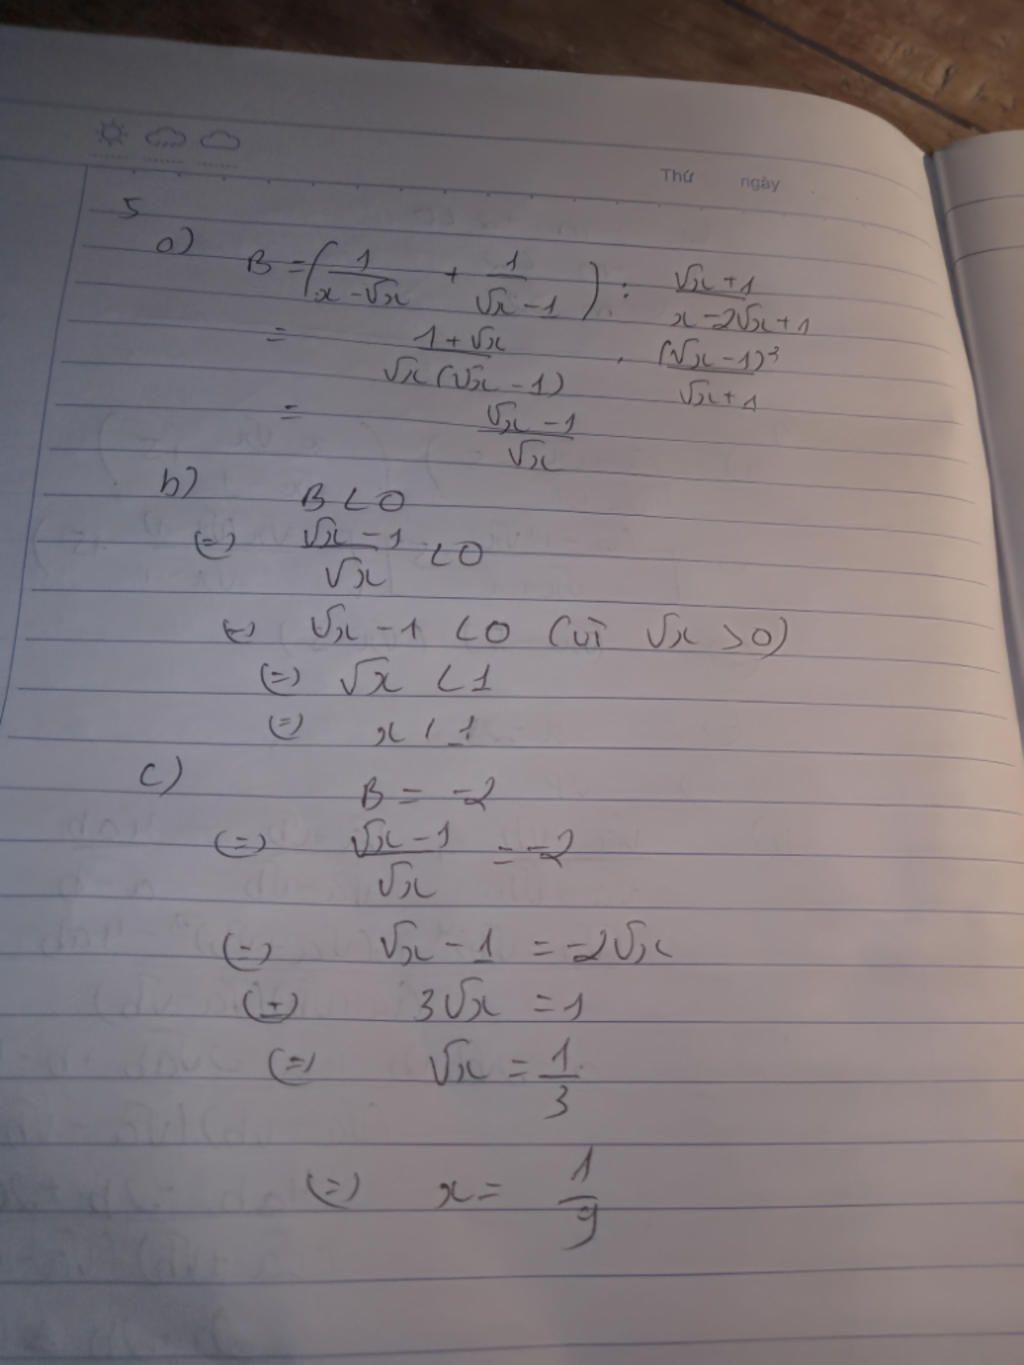 Thứ ngày
5
a) B = (1/(x - √x) + 1/(√x - 1)) : (√x + 1)/(x - 2√x + 1)
= (1 + √x)/(√x(√x - 1)) . (√x - 1)²/(√x + 1)
= (√x - 1)/√x
b) B < 0
(=) (√x - 1)/√x < 0
(=) √x - 1 < 0 (vì √x > 0)
(=) √x < 1
(=) x < 1
c) B = -2
(=) (√x - 1)/√x = -2
(=) √x - 1 = -2√x
(=) 3√x = 1
(=) √x = 1/3
(=) x = 1/9